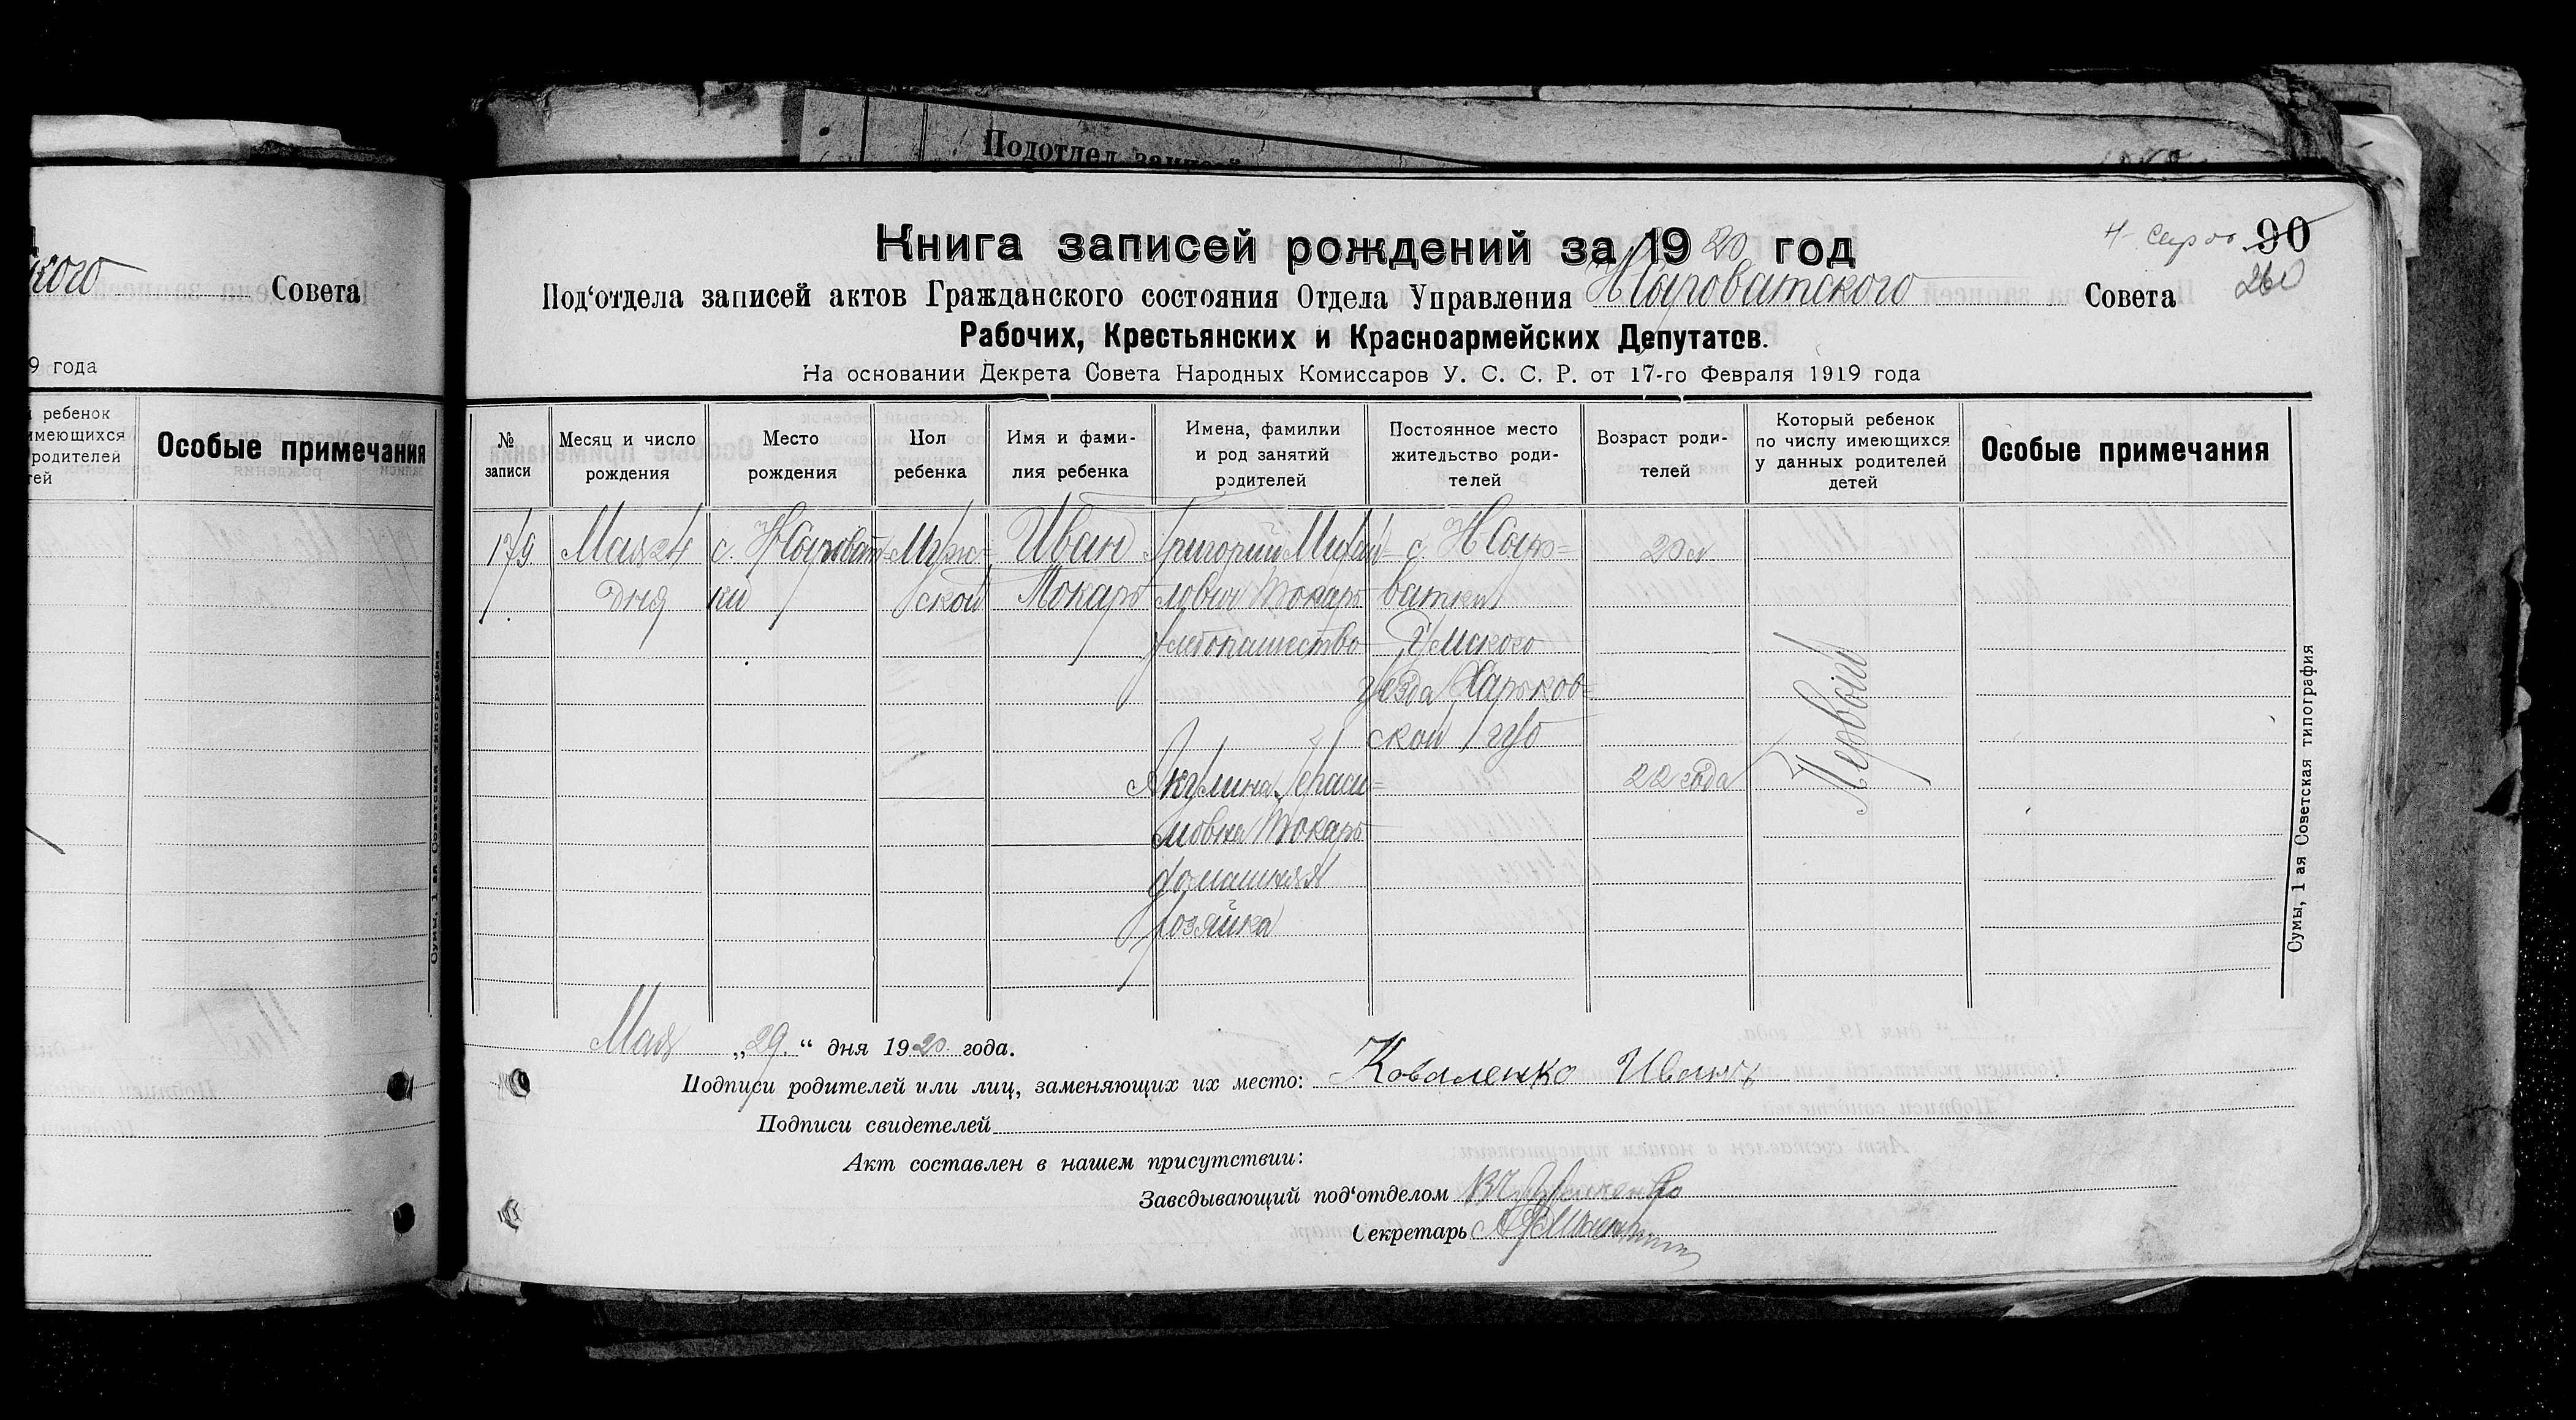 Подотдел записей
кого Совета
9 года
ребенок
имеющихся
родителей
тей
Особые примечания
Сумы, 1 ая Советская типография
90
260
Книга записей рождений за 1920 год
Под‘отдела записей актов Гражданского состояния Отдела Управления Н Сыроватского Совета
Рабочих, Крестьянских и Красноармейских Депутатов.
На основании Декрета Совета Народных Комиссаров У. С. С. Р. от 17-го Февраля 1919 года
№ записи
Месяц и число рождения
Место рождения
Пол ребенка
Имя и фами-
лия ребенка
Имена, фамилки
и род занятий
родителей
Постоянное место
жительство роди-
телей
Возраст роди-
телей
Который ребенок
по числу имеющихся
у данных родителей
детей
Особые примечания
179
Мая 24
дня
с. Н Сыроват-
ки
Муж-
ской
Иван
Токарь
Григорий Михай-
лович Токарь
хлебопашество
Акулина Гераси-
мовна Токарь
домашняя
хозяйка
с. Н Сыро-
ватки
Сумского
уезда Харьков-
ской губ
20 л
22 года
Первый
Сумы, 1 ая Советская типография
Мая „29“ дня 1920 года.
Подписи родителей или лиц, заменяющих их место: Коваленко
Подписи свидетелей
Акт составлен в нашем присутствии:
Завсдывающий под‘отделом
Секретарь